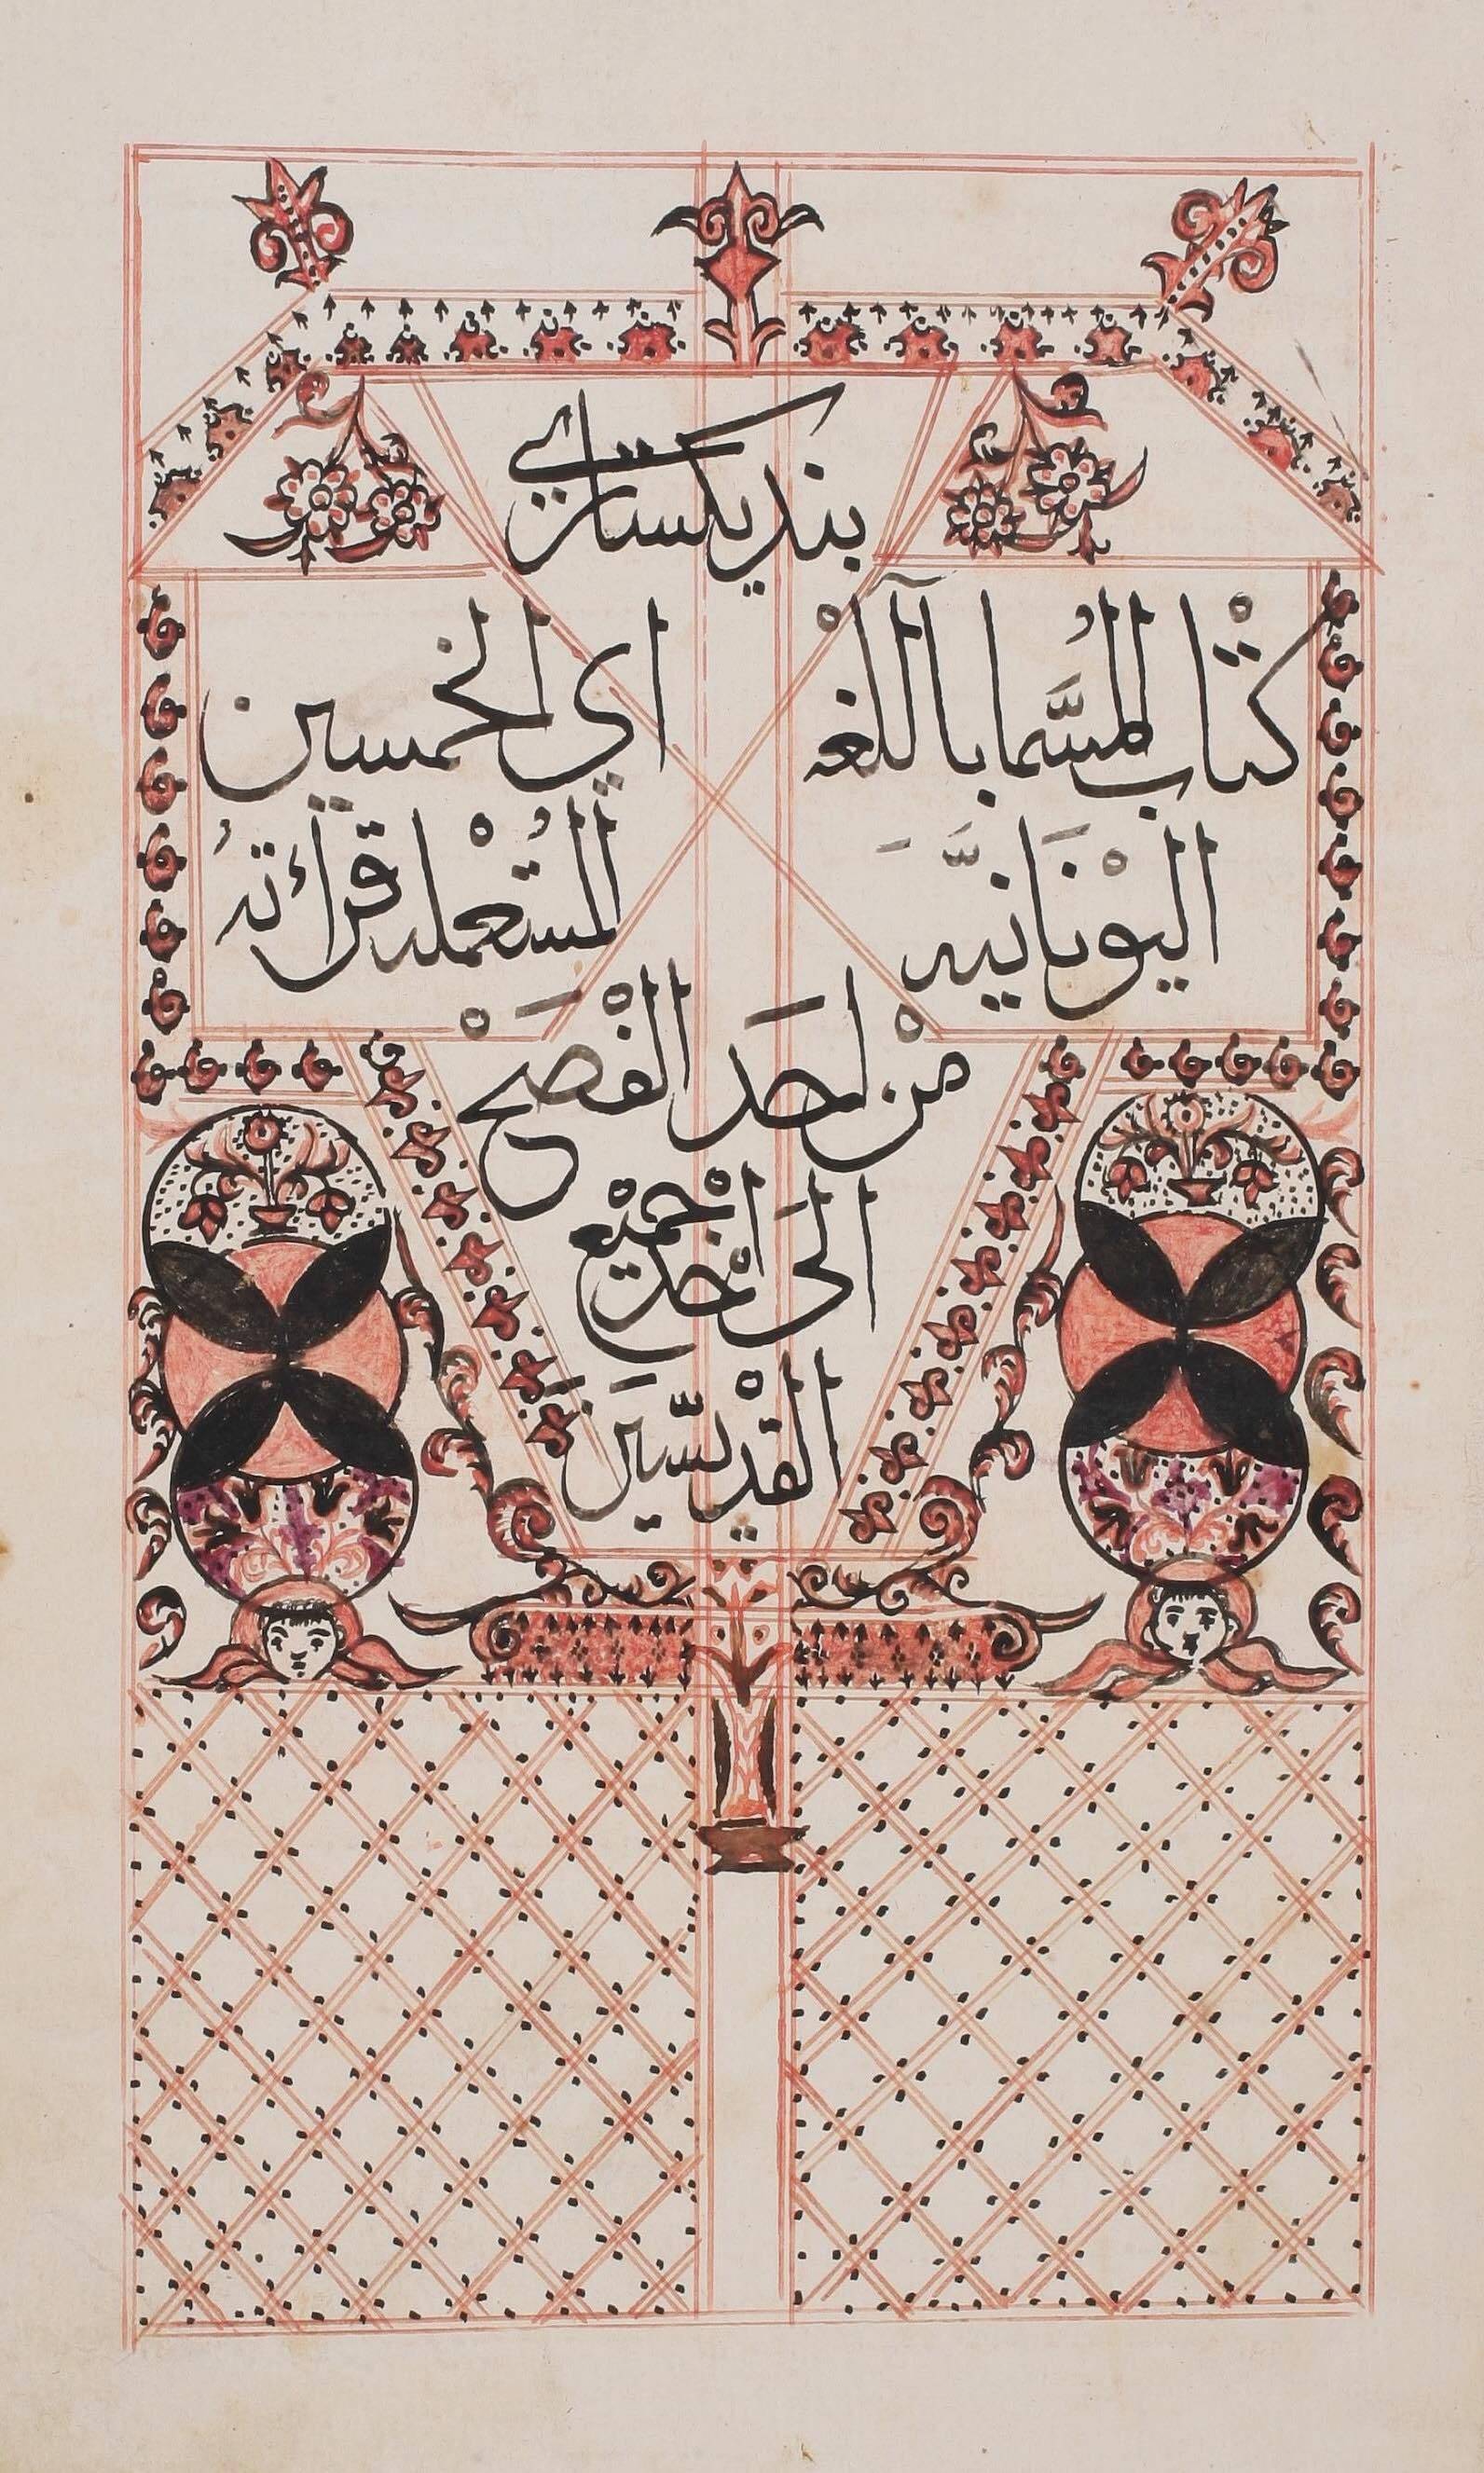 بنديكستاري
كتْاب المُسَّما باَللْغه
اي الخمسين
اليوْنَانيَّه
المُستعْمله قرأئتهُ
منْ احَد الفْصَحْ
الىَ احْد جميْع
القدْيسّيَن